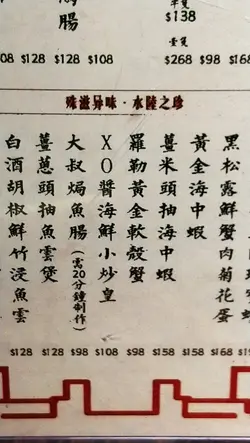 腸
$138
壹隻
$128 $128 $108
$268 $98
殊滋异味·水陸之珍
黑松露鮮蟹肉菊花蛋
黃金海中蝦
薑米頭抽海中蝦
羅勒黃金軟殼蟹
XO醬海鮮小炒皇
大叔焗魚腸(需20分鐘制作)
薑蔥頭抽魚雲煲
白酒胡椒鮮竹浸魚雲
$128 $128 $98 $108 $98 $158 $158 $168